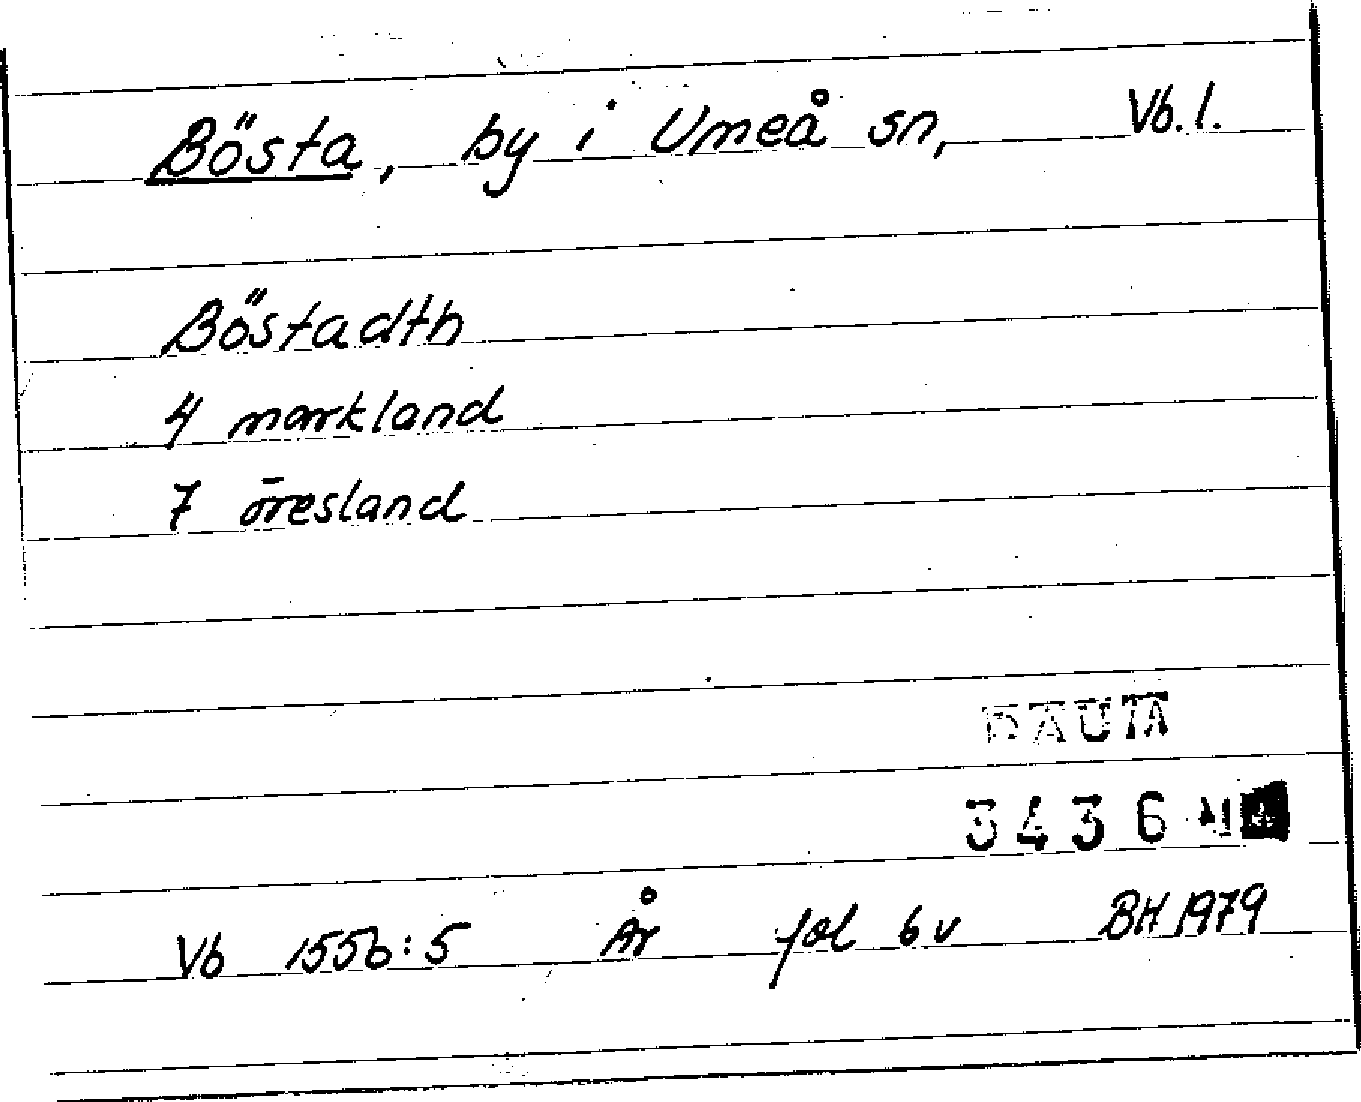 Bösta, by i Umeå sn, Vb. l.
Böstadth
4 markland
7 öresland
DAUM
3436
Vb 1556:5 År fol 6 v BH 1979